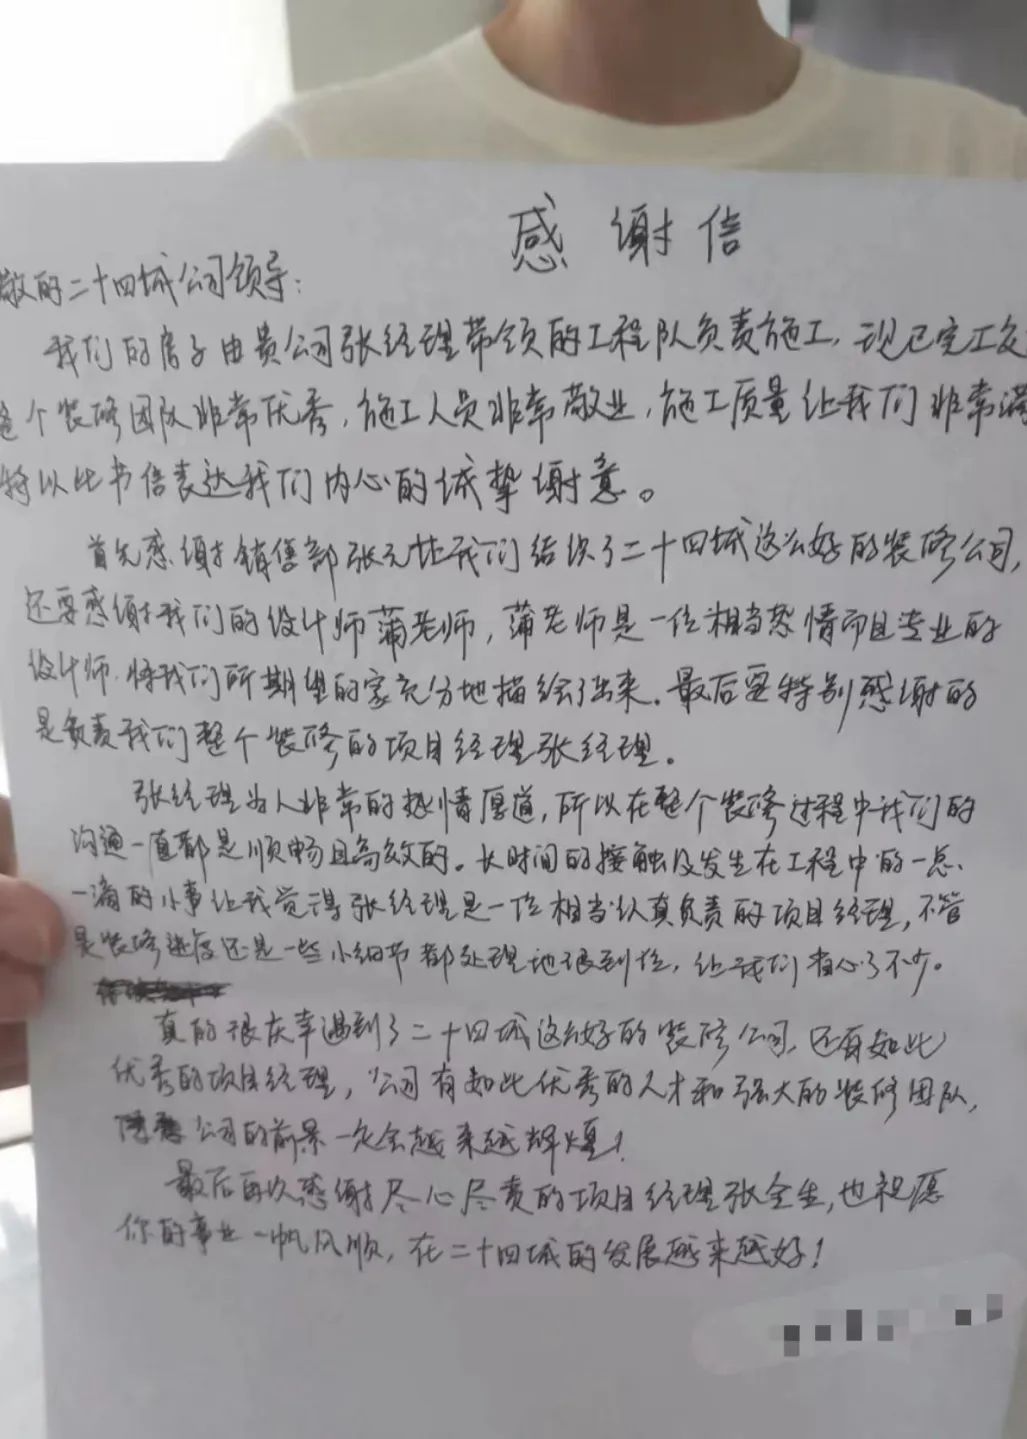 感谢信
敬的二十四城公司领导:
我们的房子由贵公司张经理带领的工程队负责施工,现已完工交
个装修团队非常优秀,施工人员非常敬业,施工质量让我们非常满
特以此书信表达我们内心的诚挚谢意。
首先感谢销售部张元让我们结识了二十四城这么好的装修公司,
还要感谢我们的设计师蒲老师,蒲老师是一位相当热情而且专业的
设计师.将我们所期望的家充分地描绘了出来.最后要特别感谢的
是负责我们整个装修的项目经理张经理.
张经理为人非常的热情厚道,所以在整个装修过程中我们的
沟通一直都是顺畅且高效的。长时间的接触及发生在工程中的一点
一滴的小事让我觉得张经理是一位相当认真负责的项目经理,不管
是装修进度还是一些小细节都处理地很到位,让我们省心了不少。
真的很庆幸遇到了二十四城这么好的装修公司,还有如此
优秀的项目经理,公司有如此优秀的人才和强大的装修团队,
公司的前景一定会越来越辉煌!
最后再次感谢尽心尽责的项目经理张全生,也祝愿
你的事业一帆风顺,在二十四城的发展越来越好!